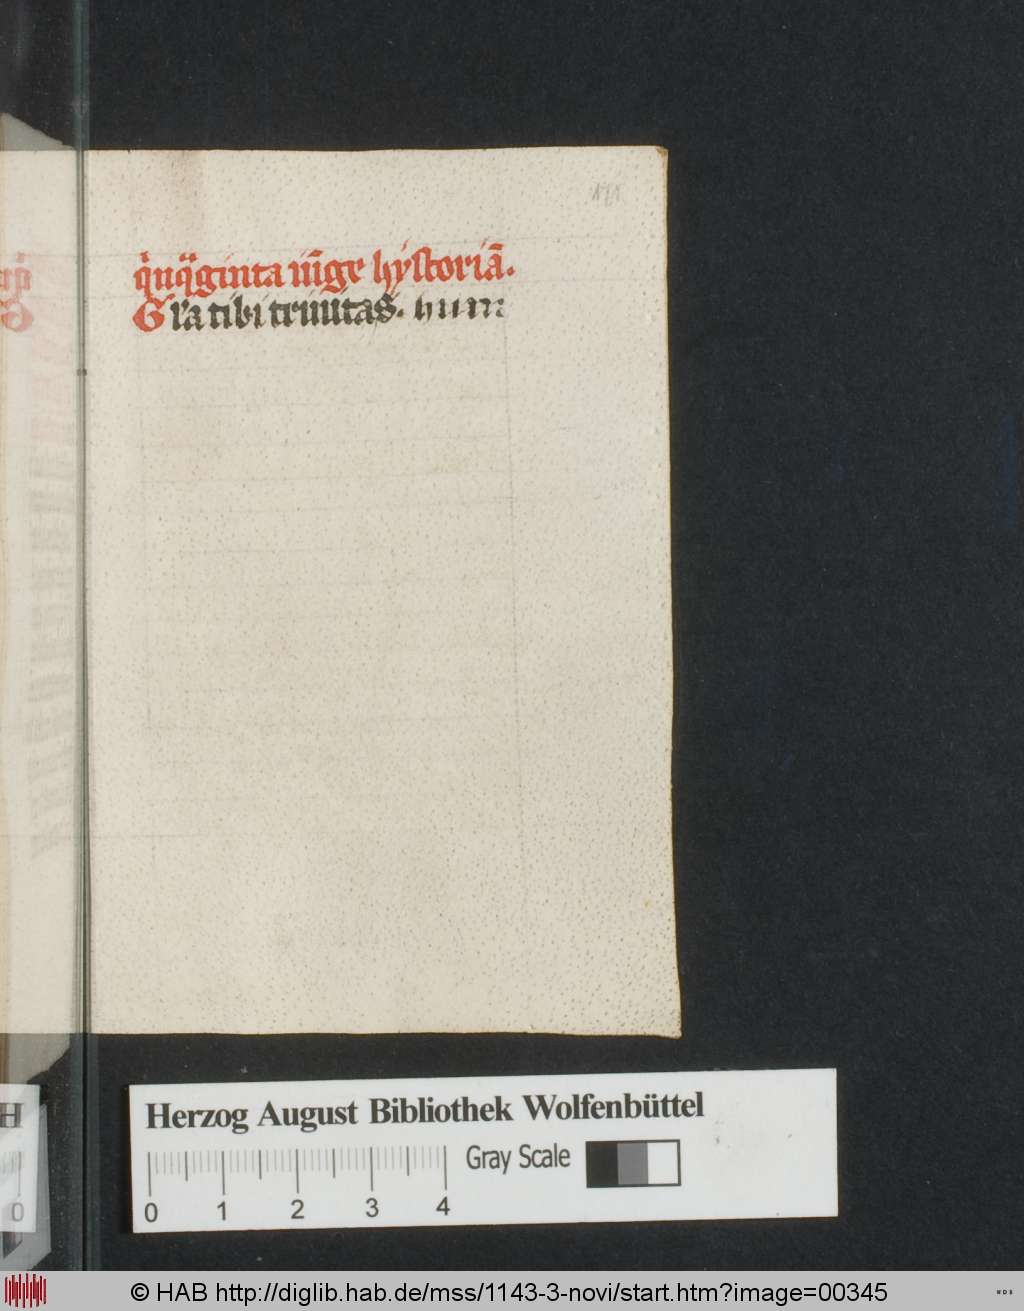 171
qͥnqͣginta iu̅ge hystoria̅.
Gr̃a tibi trinitas. hum
Herzog August Bibliothek Wolfenbüttel
0 1 2 3 4 Gray Scale
© HAB http://diglib.hab.de/mss/1143-3-novi/start.htm?image=00345